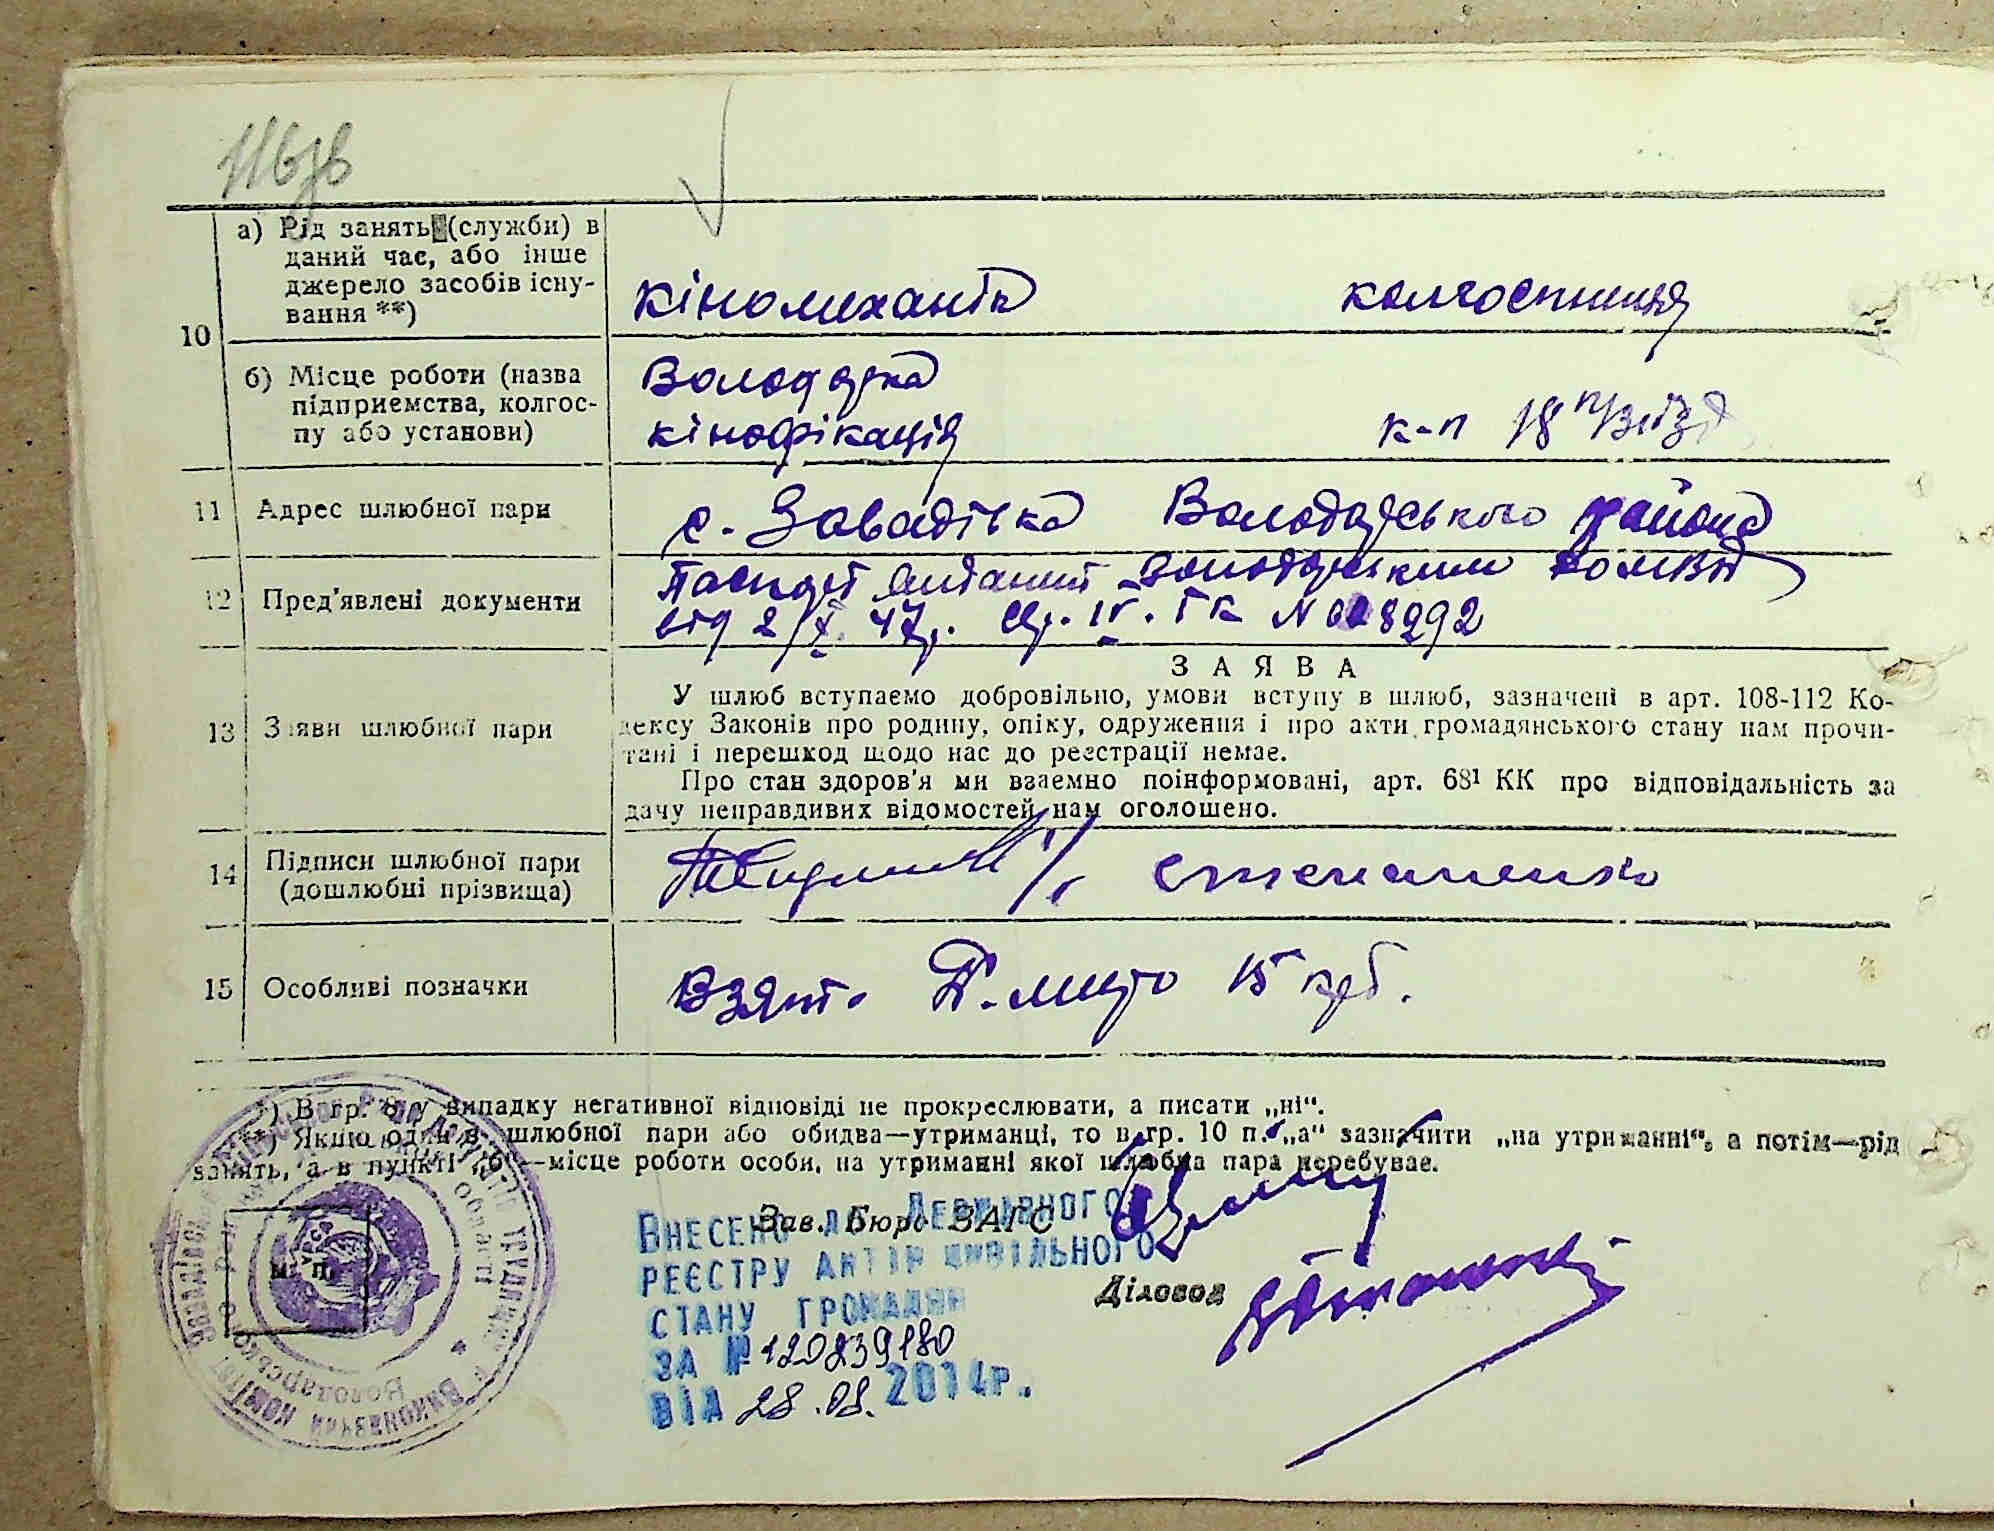 10
а) Рід занять (служби 	) в
даний час, або інше
джерело засобів існу-
вання **)
кіномеханік колгоспниця
б) Місце роботи (назва
підприємства, колгос-
пу або установи)
Володарка
кінофікація
к-п 18 п/зїзд
11 Адрес шлюбної пари
с. Завадівка Володарського района
12 Пред'явлені документи
Паспорт виданий Володарським
від 2/X. 47р. IV. ГК N 8292
13 Заяви шлюбної пари
ЗАЯВА
У шлюб вступаємо добровільно, умови вступу в шлюб, зазначені в арт. 108-112 Ко-
дексу Законів про родину, опіку, одруження і про акти громадянського стану нам прочи-
тані і перешкод щодо нас до реєстрації немає.
Про стан здоров'я ми взаємно поінформовані, арт. 68¹ КК про відповідальність за
дачу неправдивих відомостей нам оголошено.
14 Підписи шлюбної пари
(дошлюбні прізвища)
Степаненко
15 Особливі позначки
Взято Д. мито 15 крб.
*) В гр. 8 у випадку негативної відповіді не прокреслювати, а писати „ні“.
**) Якщо один в шлюбної пари або обидва—утриманці, то в гр. 10 п. „а“ зазначити „на утриманні“, а потім—рід
занять, а в пункті „б“—місце роботи особи, на утриманні якої шлюбна пара перебуває.
Зав. Бюро ЗАГС
М. П.
Діловод
ВНЕСЕНО ДО ДЕРЖАВНОГО
РЕЄСТРУ АКТІВ ЦИВІЛЬНОГО
СТАНУ ГРОМАДЯН
ЗА № 120239180
ВІД 28.08.2014р.